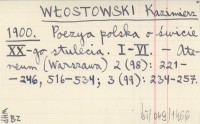 WŁOSTOWSKI Kazimierz
1900. Poezya polska o świcie
XX-go stulecia. I-VI. - Ate-
neum (Warszawa) 2 (98): 221-
-246, 516-534; 3 (99): 234-257.
BZ
67/049/1966